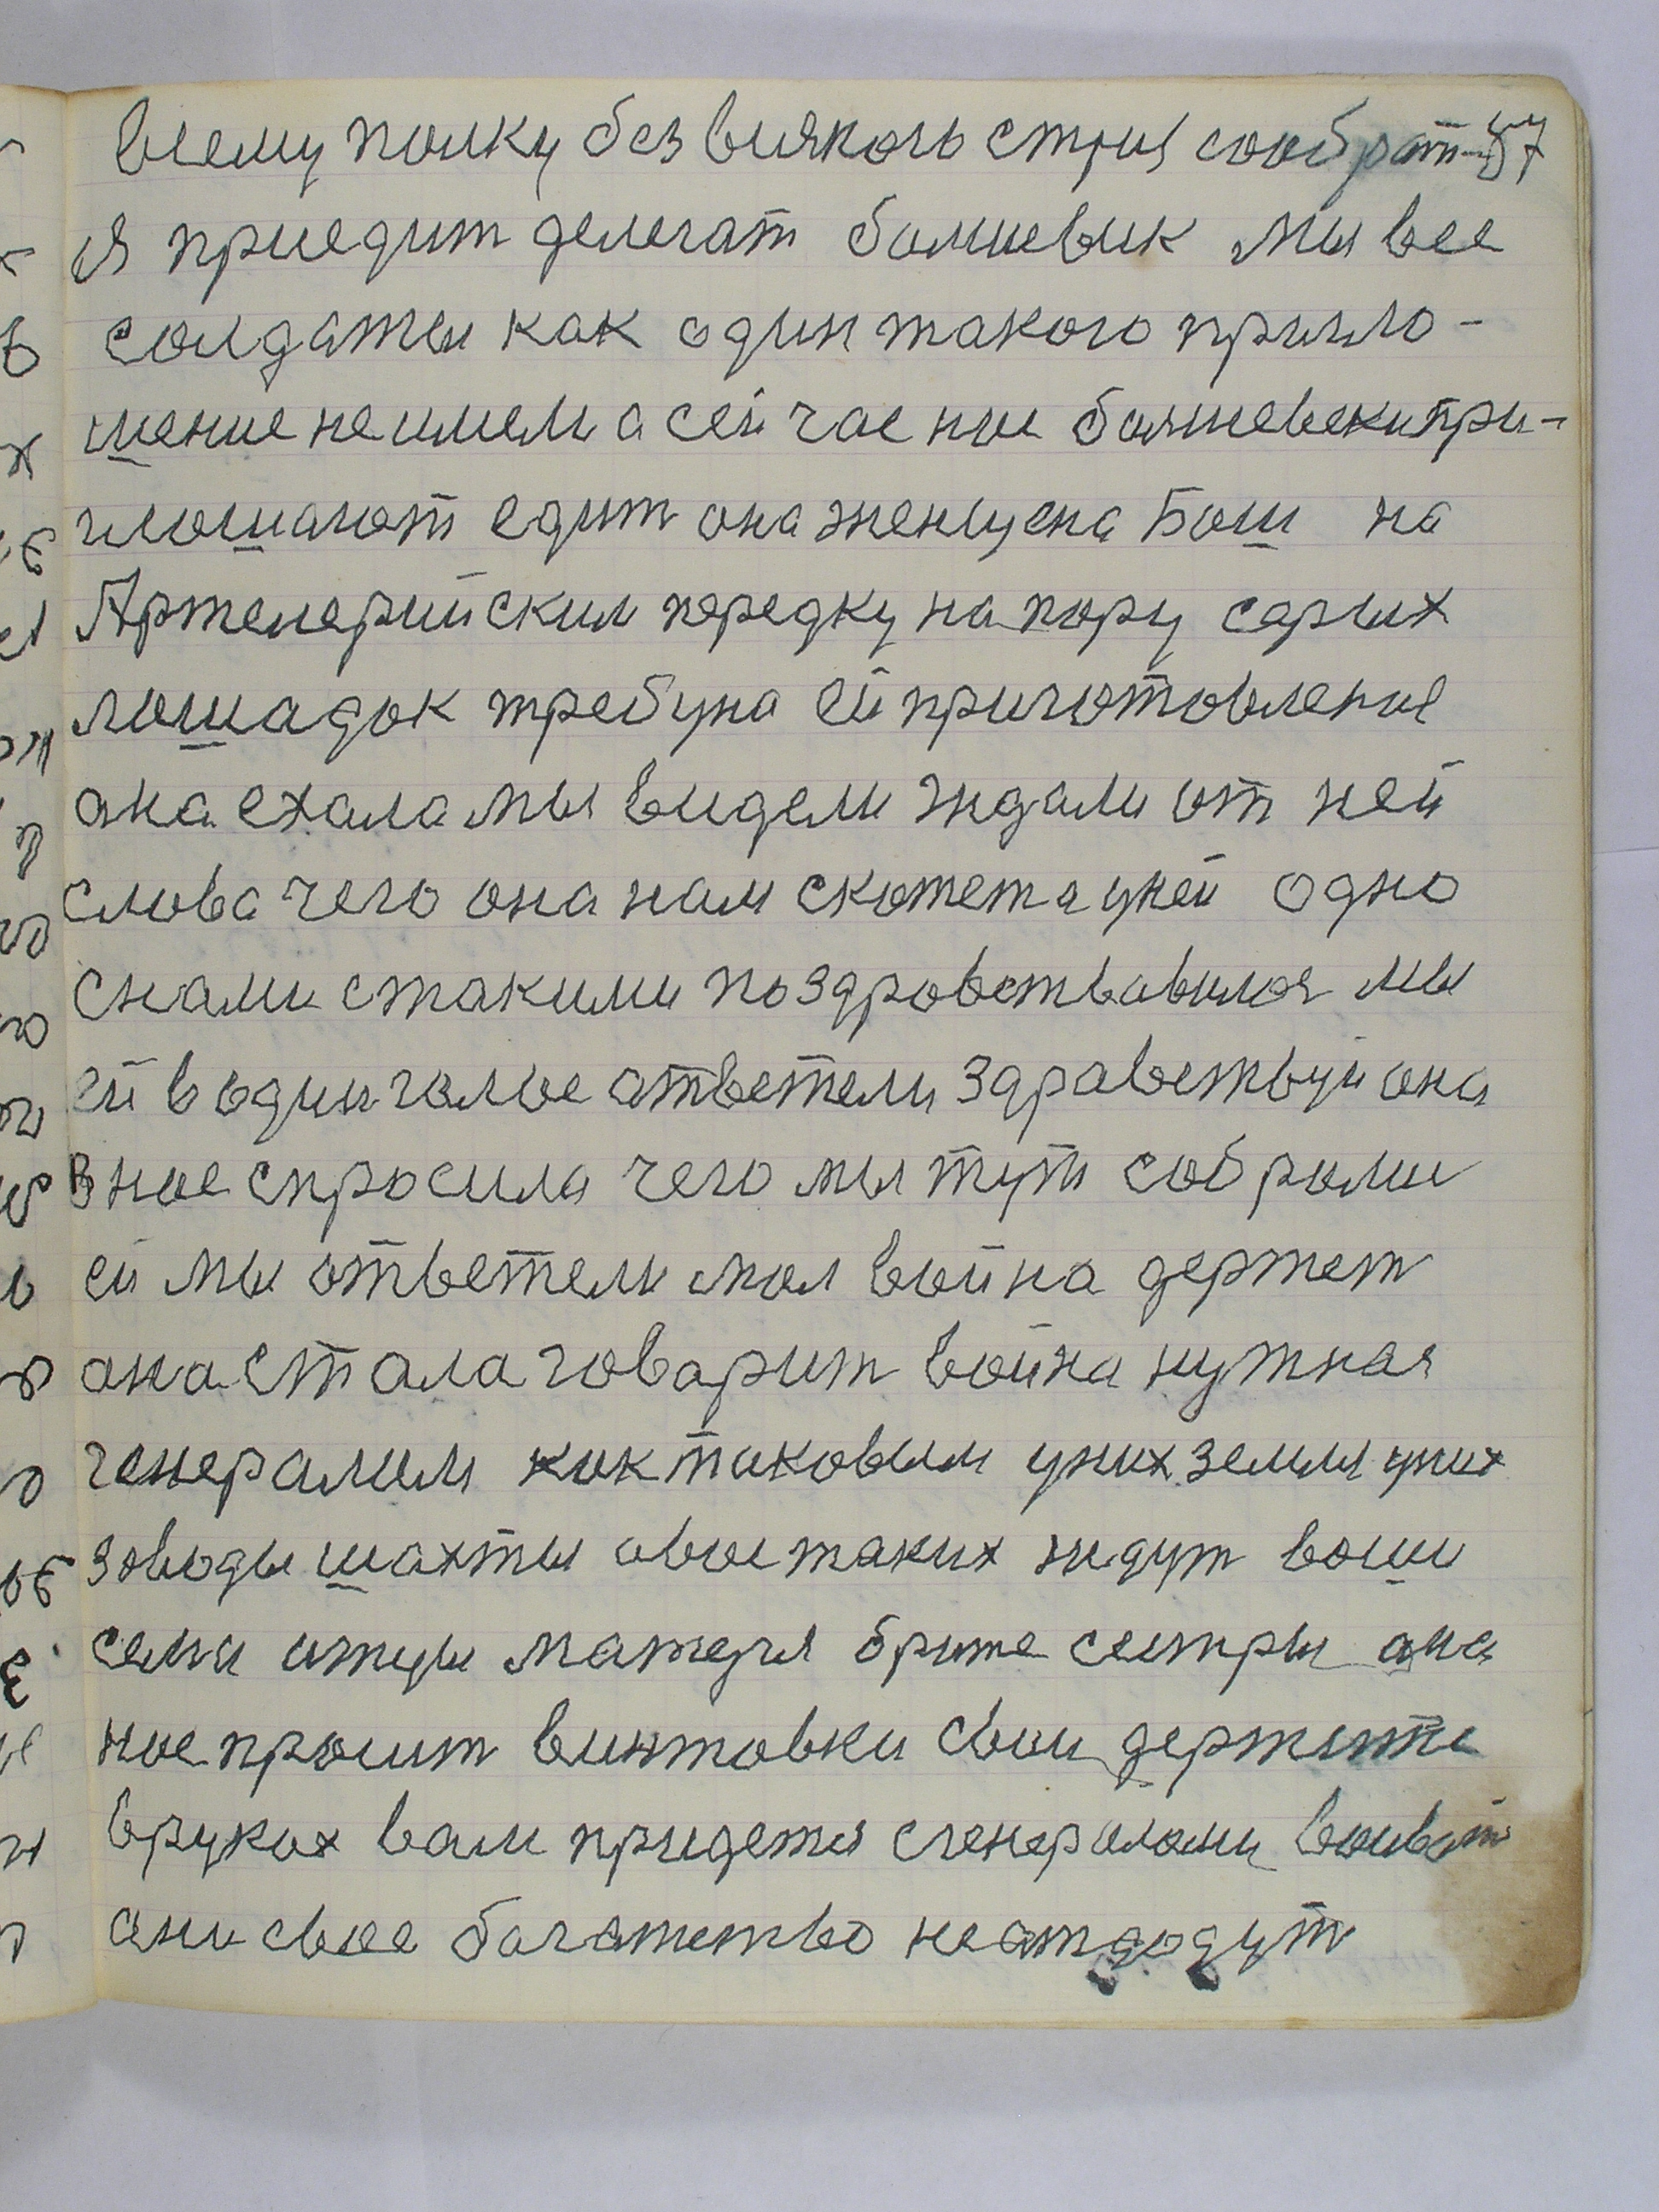 всему полку без всякого строя сообрат- 57
ся приедит делегат болшевик мы все
солдаты как один такого пригло-
шение неимем а сейчас нас болшевеки при-
глошают едит она женщена Бош на
Артелерийским передку на пору серых
лошадок требуна ей приготовление
она ехала мы видели ждали от ней
слова чего она нам скотет а уней одно
снами стакими поздровствавился мы
ей в один голос ответели здравствуй она
в нас спросила чего мы тут собрали
ей мы ответели мол война держет
она стала говарит война нужная
генералам как таковым уних земли уних
зоводы шахты авас таких ждут ваши
семи отцы матеря братя сестры она
нас просит винтовки свои держите
вруках вам придется сгенералами воиват
они свое богатство неатдодут